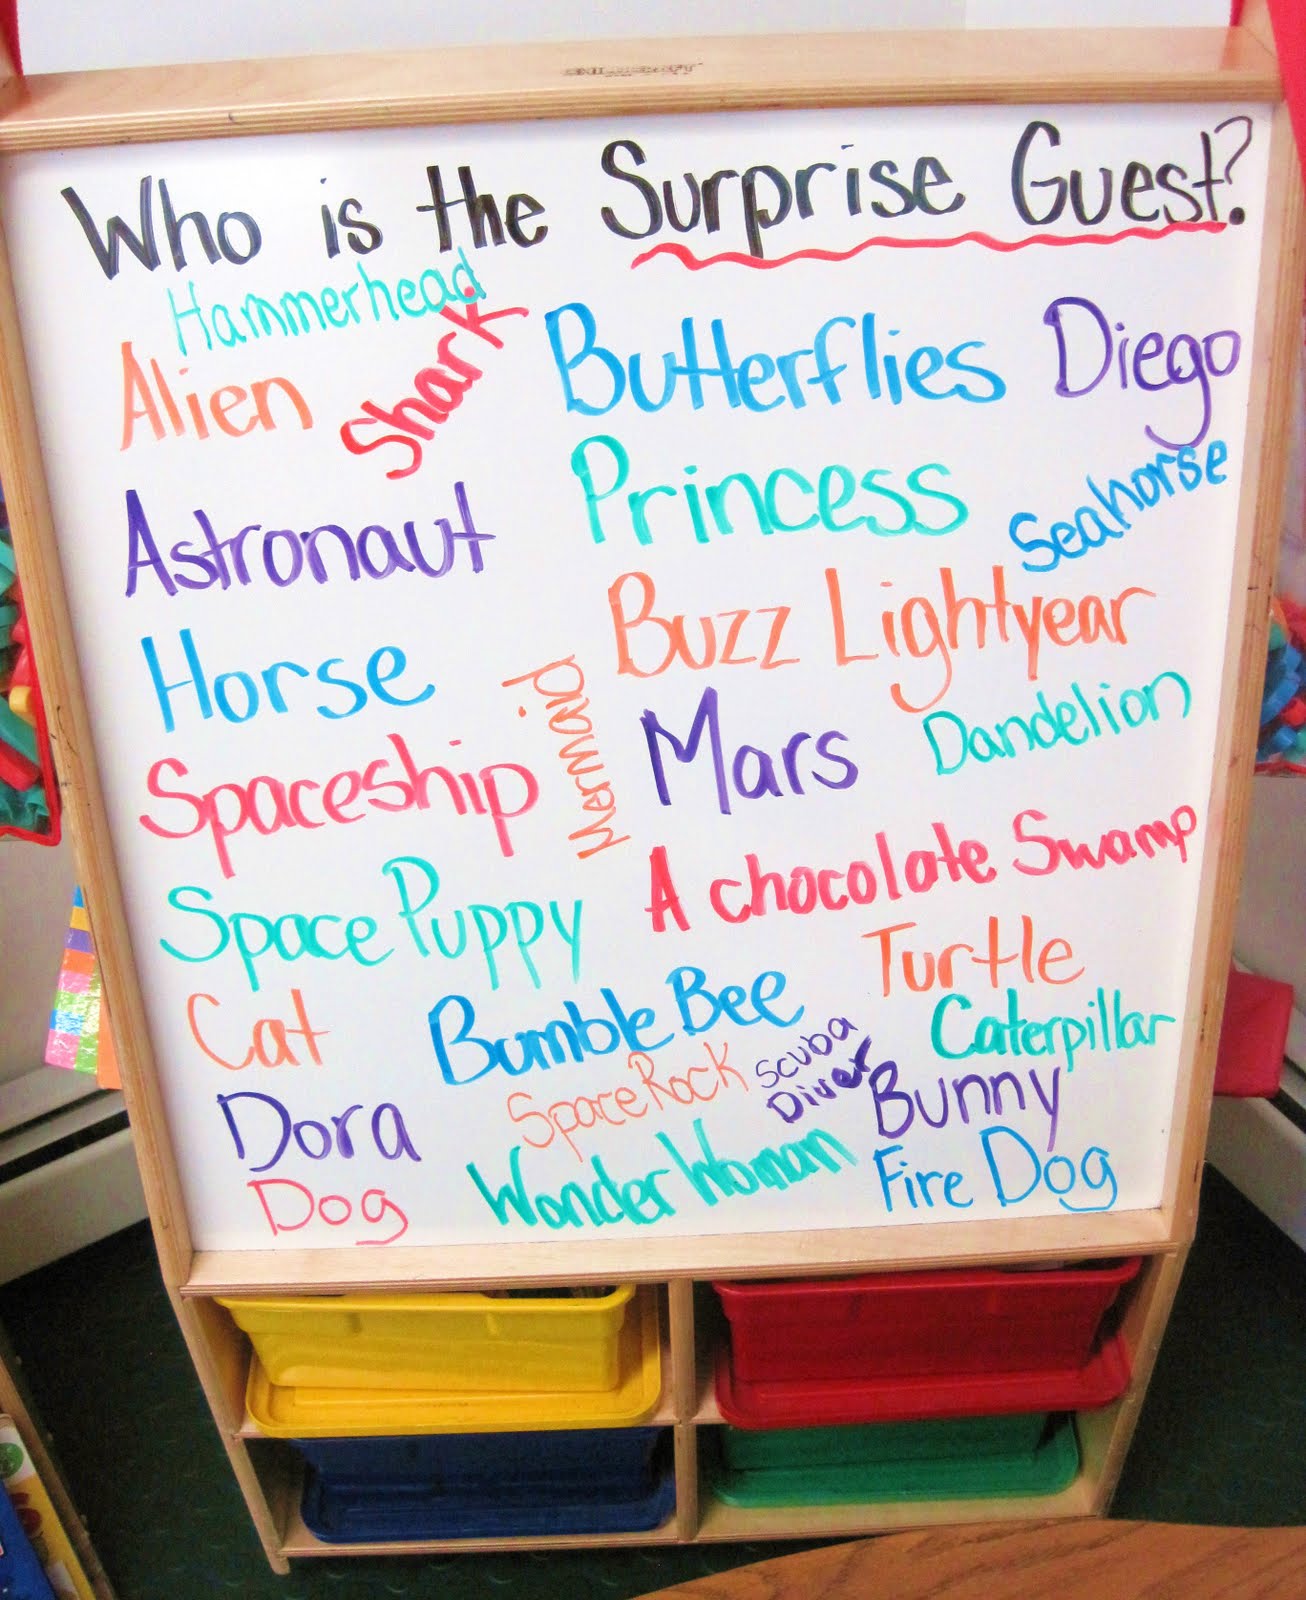 Who is the Surprise Guest?
Hammerhead
Shark
Alien
Butterflies
Diego
Astronaut
Princess
Seahorse
Horse
Buzz Lightyear
Mermaid
Spaceship
Mars
Dandelion
Space Puppy
A chocolate Swamp
Cat
Bumble Bee
Turtle
Caterpillar
Dora
Space Rock
Scuba
Diver
Bunny
Dog
Wonder Woman
Fire Dog